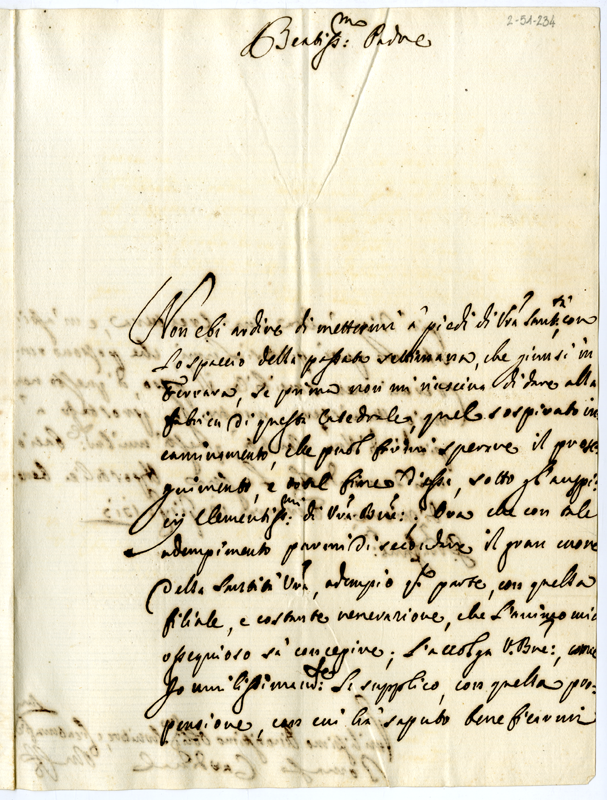 2-51-234
Beatiss:mo Padre
Non ebi ardire di mettermi a' piedi di Vrã Santtà, con
lo spaccio della passata settimana, che giunsi in
Ferrara, se prima non mi riusciva di dare alla
fabrica di questa Catedrale, quel sospirato in
caminamento, che puol farmi sperare il prose-
guimento, e total fine d'essa, sotto gl'auspi-
cij Clementiss:mi di Vrã Bne:. Ora che con tale
adempimento parmi di secondare il gran cuore
della Santità Vrã, adempio pte parte, con quella
filiale, e costante venerazione, che l'animo mio
ossequioso sà concepire; l'accolga V. Bne:, come
Io umilissimamte: La supplico, con quella pro-
pensione, con cui hà saputo beneficarmi